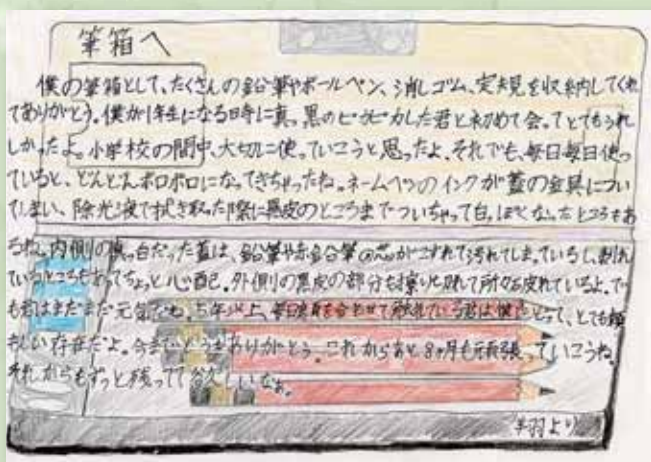 筆箱へ
僕の筆箱として、たくさんの鉛筆やボールペン、消しゴム、定規を収納してくれ
てありがとう。僕が1年生になる時に真っ黒のピカピカした君と初めて会ってとてもうれ
しかったよ。小学校の間中、大切に使っていこうと思ったよ。それでも、毎日毎日使っ
ていると、どんどんボロボロになってきちゃったね。ネームペンのインクが蓋の金具につい
てしまい、除光液で拭き取った際に黒皮のところまでついちゃって白っぽくなったところもあ
るね。内側の真っ白だった蓋は、鉛筆や赤鉛筆の芯がこすれて汚れてしまっているし、割れ
ているところもあってちょっと心配。外側の黒皮の部分も擦り切れて所々破れているよ。で
も君はまだまだ元気だね。5年以上、毎日顔を合わせて触れている君は僕にとって、とても頼
もしい存在だよ。今までどうもありがとう。これからあと8ヶ月も頑張っていこうね。
それからもずっと残ってて欲しいなぁ。
羽より